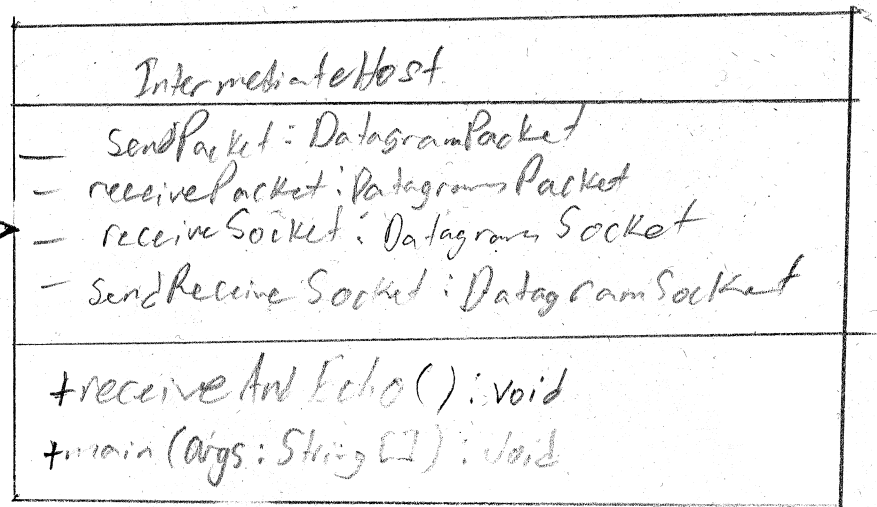 IntermediateHost
- sendPacket : DatagramPacket
- receivePacket : DatagramPacket
- receiveSocket : DatagramSocket
- sendReceiveSocket : DatagramSocket
+receiveAndEcho() : void
+main(args : String[]) : void